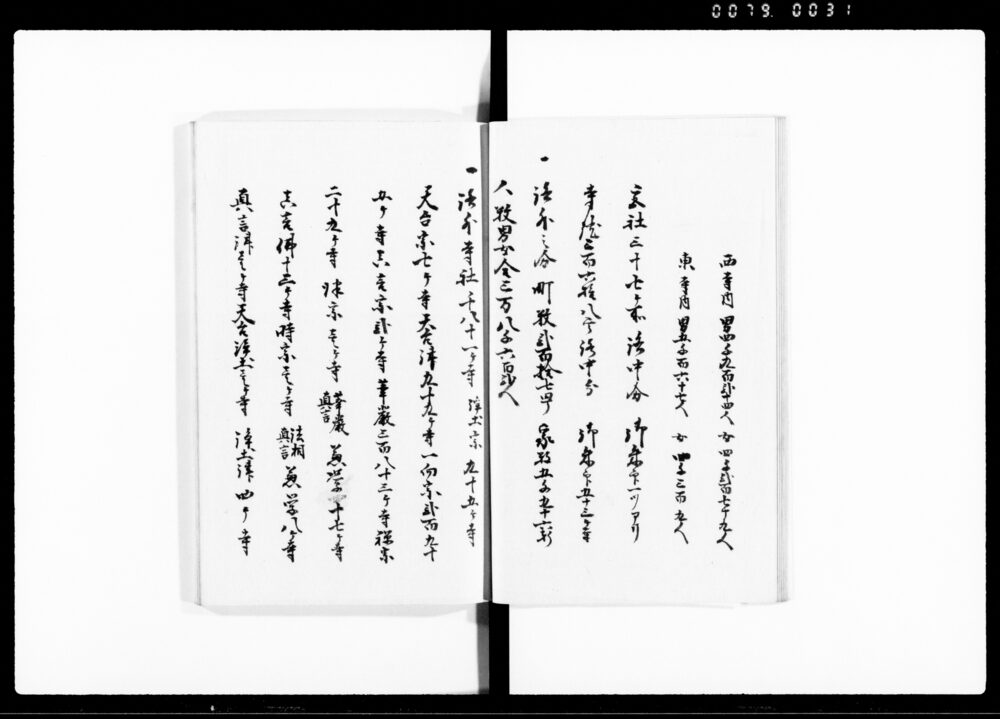 0079. 0031
西寺内 男四千九百弐十四人 女四千弐百七十九人
東寺内 男五千百六十七人 女四千三百九人
宮社三十七ヶ所 洛中分 御朱印一ツアリ
寺院三百六拾八ヶ所洛中分 御朱印五十三ヶ寺
一 洛外之分 町数弐百拾七町 家数五千九十六軒
人数男女合三万八千六百弐人
一 洛外寺社 千八十一ヶ寺 浄土宗 九十五ヶ寺
天台宗七ヶ寺 天台律九十九ヶ寺 一向宗弐百九十
五ヶ寺 真言宗弐ヶ寺 華厳三百八十三ヶ寺 禅宗
二十九ヶ寺 律宗壱ヶ寺 華厳真言 兼学四十七ヶ寺
真言律十三ヶ寺 時宗壱ヶ寺 法相真言 兼学八ヶ寺
真言律壱ヶ寺 天台浄土壱ヶ寺 浄土律 四ヶ寺